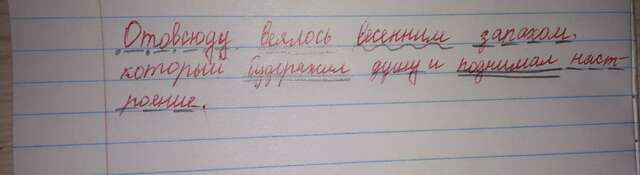 Отовсюду веялось весенним запахом,
который будоражил душу и поднимал наст-
роение.